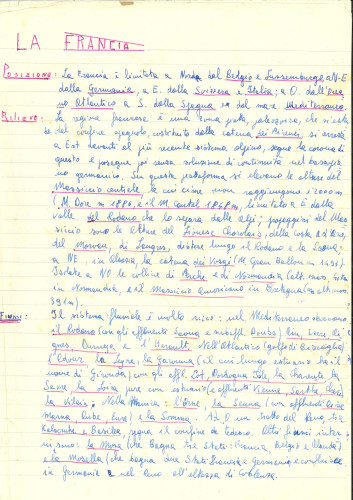 LA FRANCIA
POSIZIONE: La Francia è limitata a Nord dal Belgio e Lussemburgo, a N-E
dalla Germania, a E. dalla Svizzera e Italia; a O. dall'Ocea
no Atlantico a S. dalla Spagna e dal mare Mediterraneo.
RILIEVO: La regione francese è una zona piatta, paleozoica, che si
del confine spagnolo, costituito dalla catena dei Pirenei, si arresta
a Est davanti al più recente sistema alpino, segue la corona di
questo e prosegue poi senza soluzione di continuità nel bassopia
no germanico. Su questa piattaforma, si elevano le alture del
Massiccio centrale le cui cime non raggiungono i 2000 m
(M. Dore m 1886 e il M. Cantal 1858 m), limitato a E dalla
valle del Rodano che lo separa dalle alpi; propaggini del Mas
siccio sono le alture del Limosé Charolais, della Costa d'Oro,
del Morvan, di Langres, distese lungo il Rodano e la Saona
a NE, in Alsazia, la catena dei Vosgi (M. Gran Ballon m. 1423)
Isolate a NO le colline di Perche e di Normandia (alt. mass.
in Normandia, e il Massiccio Armoricano in Bretagna alt. mass.
391 m).
FIUMI: Il sistema fluviale è molto ricco: nel Mediterraneo sboccano
il Rodano (con gli affluenti Saona e subaffl. Doubs,
Durance e l'Herault. Nell'Atlantico (golfo di Biscaglia)
l'Adour, la Garonna (il cui lungo estuario ha il
nome di Gironda) con gli affl. Lot, Dordogna, la Charente, la
Sevre, la Loira pure con estuario (e affluenti Vienne, Sarthe, Cher)
la Vilaine. Nella Manica: l'Orne, la Senna (con affluenti Oise
Marna, Aube, Eure) e la Somme. Ad O un tratto del Reno, tra
e Basilea segna il confine de Tedesco. Altri fiumi
sono: la Mosa (che bagna tre Stati: Francia, Belgio e Olanda)
e la Mosella (che bagna due Stati Francia e Germania, e confluisce
in Germania nel Reno all'altezza di Coblenza.